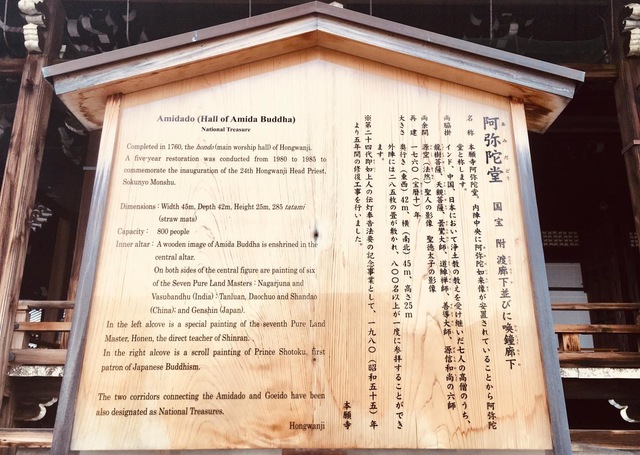 Amidado (Hall of Amida Buddha)
National Treasure
Completed in 1760, the hondo (main worship hall) of Hongwanji.
A five-year restoration was conducted from 1980 to 1985 to
commemorate the inauguration of the 24th Hongwanji Head Priest,
Sokunyo Monshu.
Dimensions : Width 45m, Depth 42m, Height 25m, 285 tatami
(straw mats)
Capacity : 800 people
Inner altar : A wooden image of Amida Buddha is enshrined in the
central altar.
On both sides of the central figure are painting of six
of the Seven Pure Land Masters : Nagarjuna and
Vasubandhu (India) ; Tanluan, Daochuo and Shandao
(China); and Genshin (Japan).
In the left alcove is a special painting of the seventh Pure Land
Master, Honen, the direct teacher of Shinran.
In the right alcove is a scroll painting of Prince Shotoku, first
patron of Japanese Buddhism.
The two corridors connecting the Amidado and Goeido have been
also designated as National Treasures.
Hongwanji
あみだどう
阿弥陀堂 国宝 附 渡廊下並びに喚鐘廊下
名称 本願寺阿弥陀堂 内陣中央に阿弥陀如来像が安置されていることから阿弥陀
堂と称します。
両脇掛 インド、中国、日本において浄土教の教えを受け継いだ七人の高僧のうち、
龍樹菩薩、天親菩薩、曇鸞大師、道綽禅師、善導大師、源信和尚の六師
両余間 源空(法然)聖人の影像 聖徳太子の影像
再建 一七六〇(宝暦十)年
大きさ 奥行き(東西)42m、横(南北)45m、高さ25m
外陣には二八五枚の畳が敷かれ、八〇〇名以上が一度に参拝することができ
ます。
※第二十四代即如上人の伝灯奉告法要の記念事業として、一九八〇(昭和五十五)年
より五年間の修復工事を行いました。
本願寺